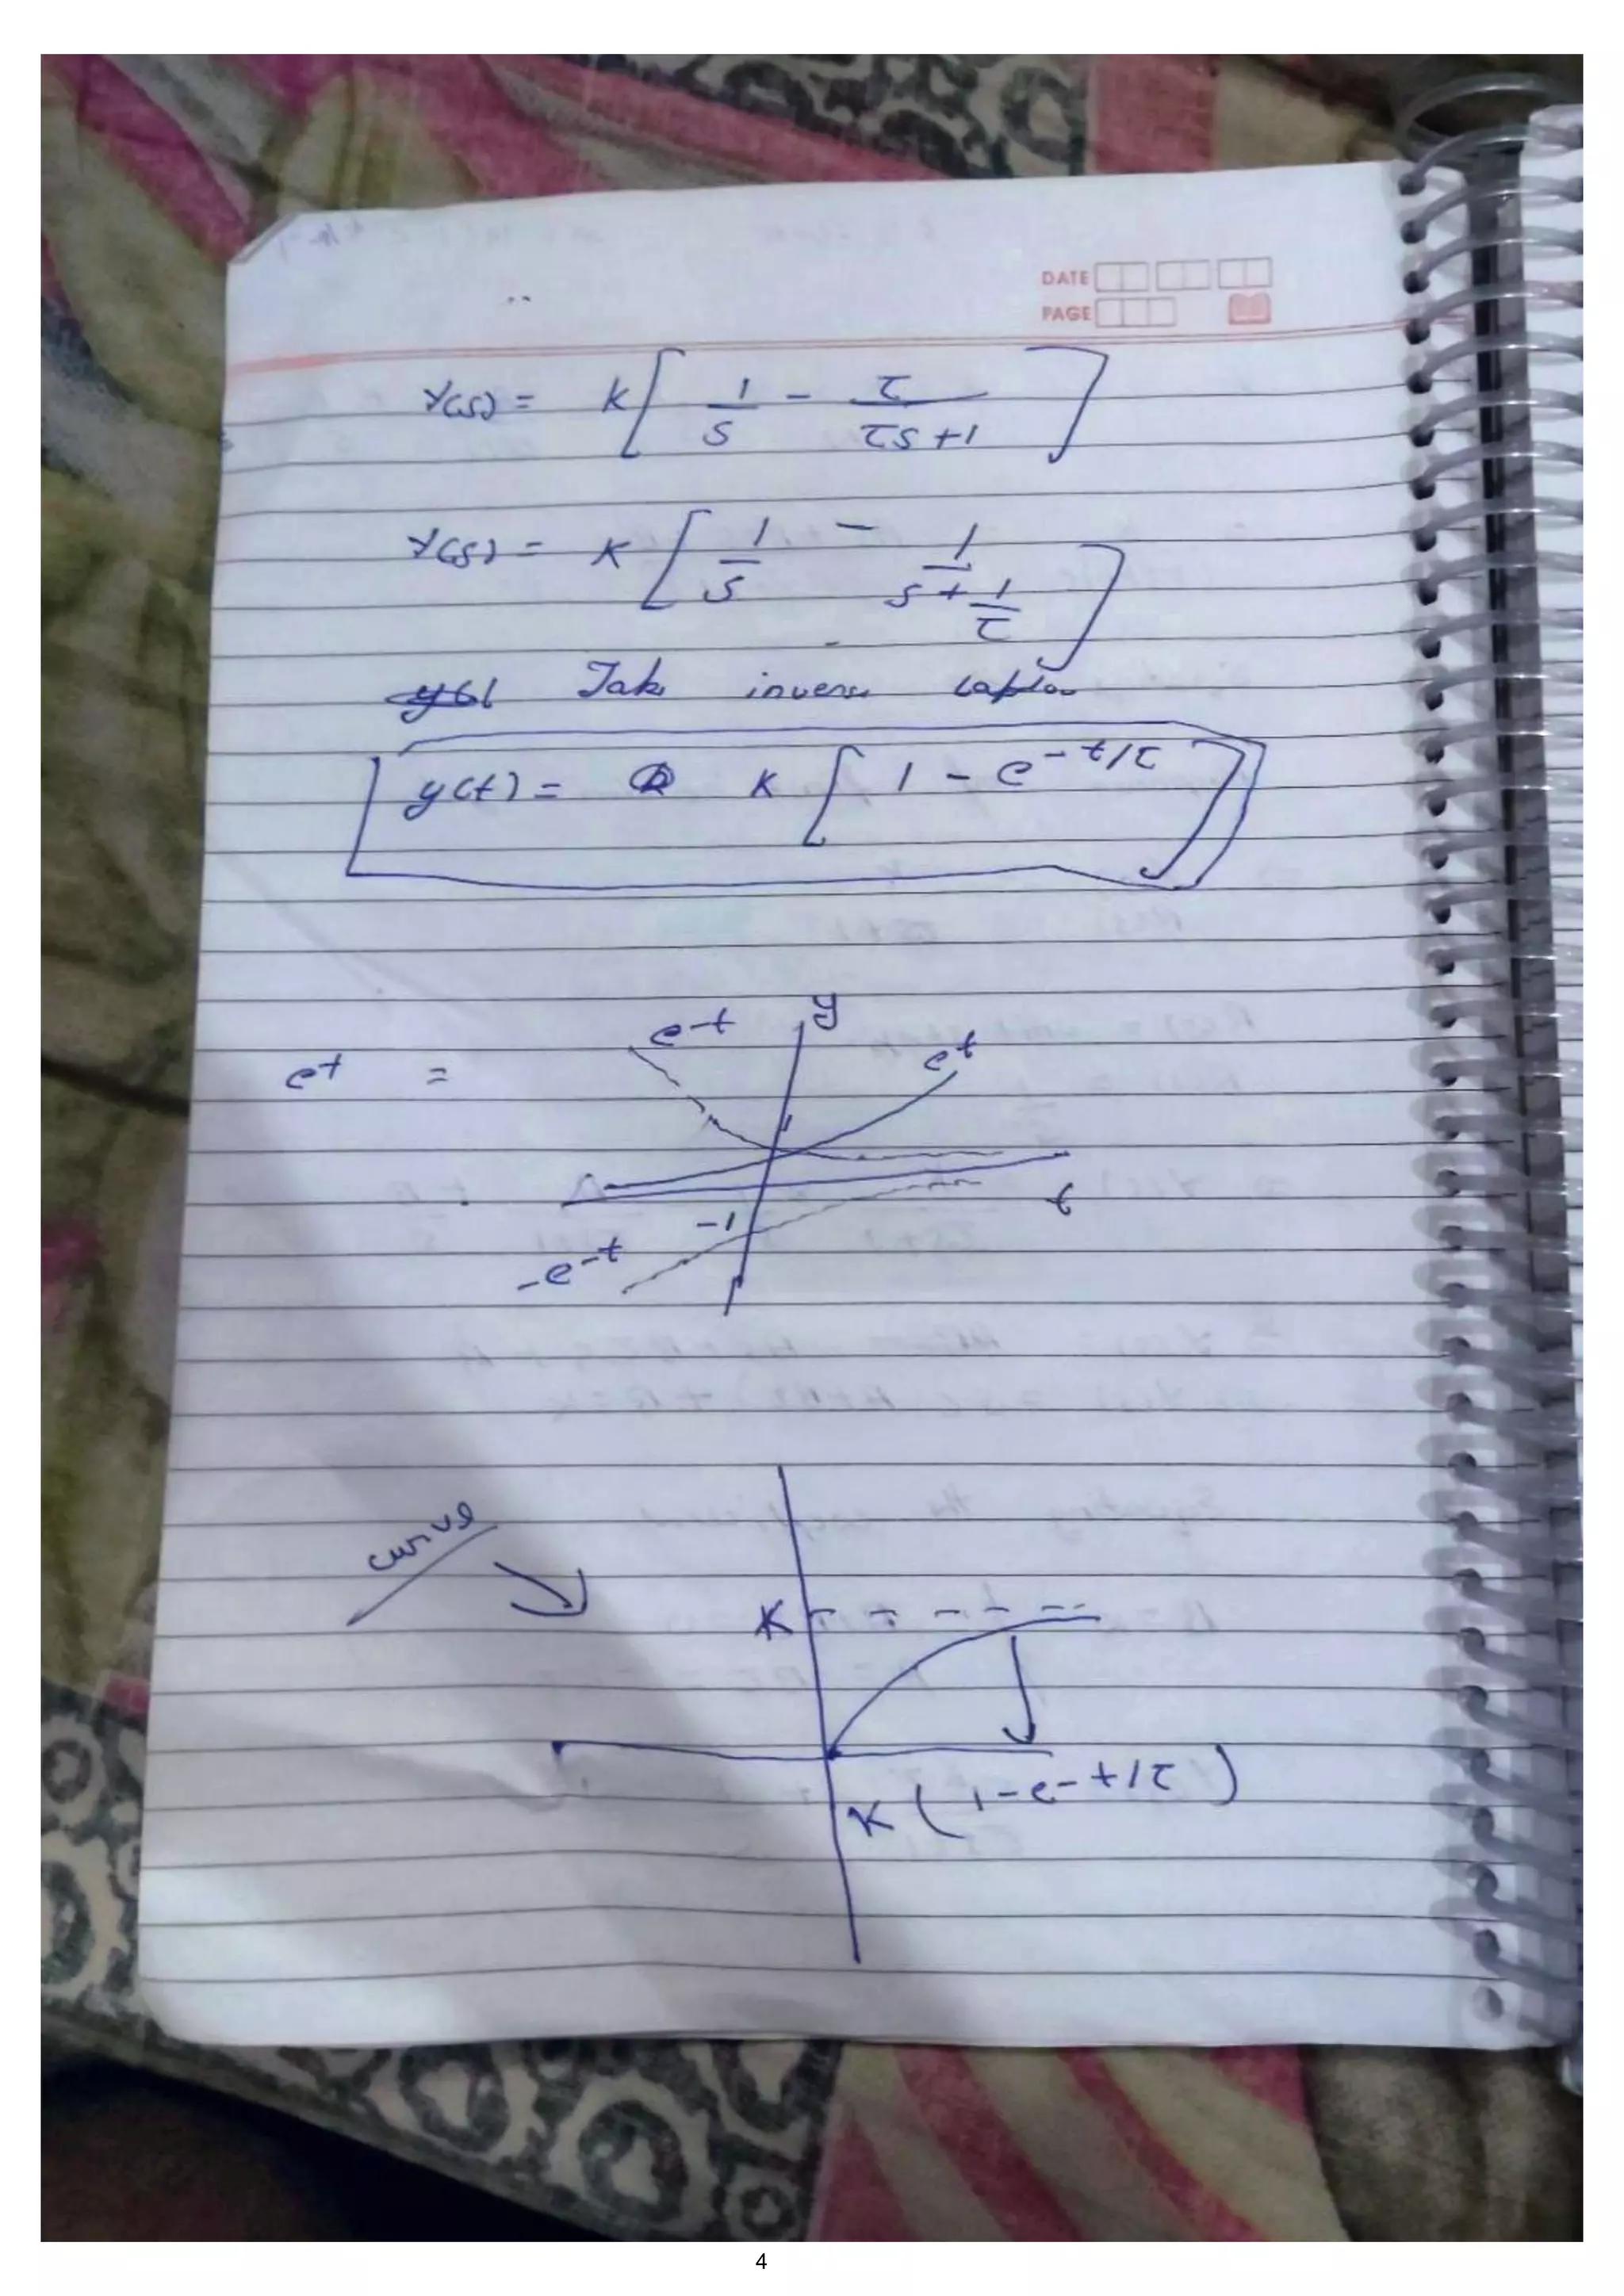 DATE
PAGE
Y(s) = K[ 1/s - τ/(τs+1) ]
Y(s) = K[ 1/s - 1/(s+1/τ) ]
Take inverse
y(t) = K[ 1 - e^-t/τ ]
e^-t y
e^t = e^t
1
t
-1
-e^-t
curve
K
K(1-e^-t/τ)
4